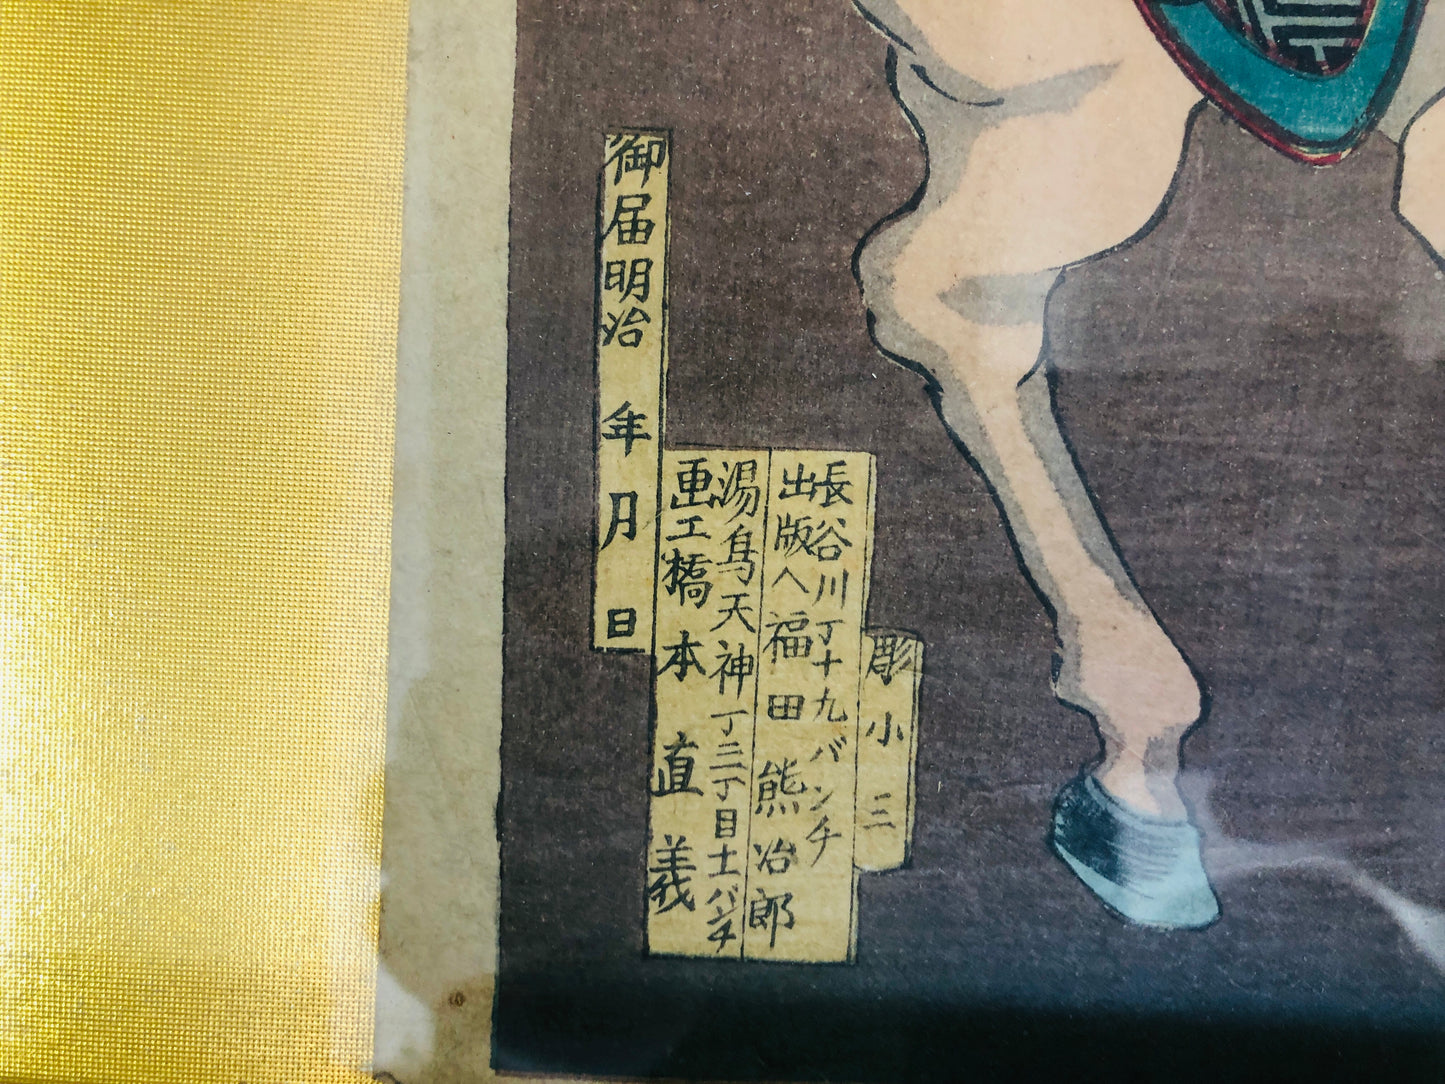 彫小三
長谷川丁十九バンチ
出版人福田熊治郎
湯島天神丁三丁目十一バンチ
画工橋本直義
御届明治　年　月　日